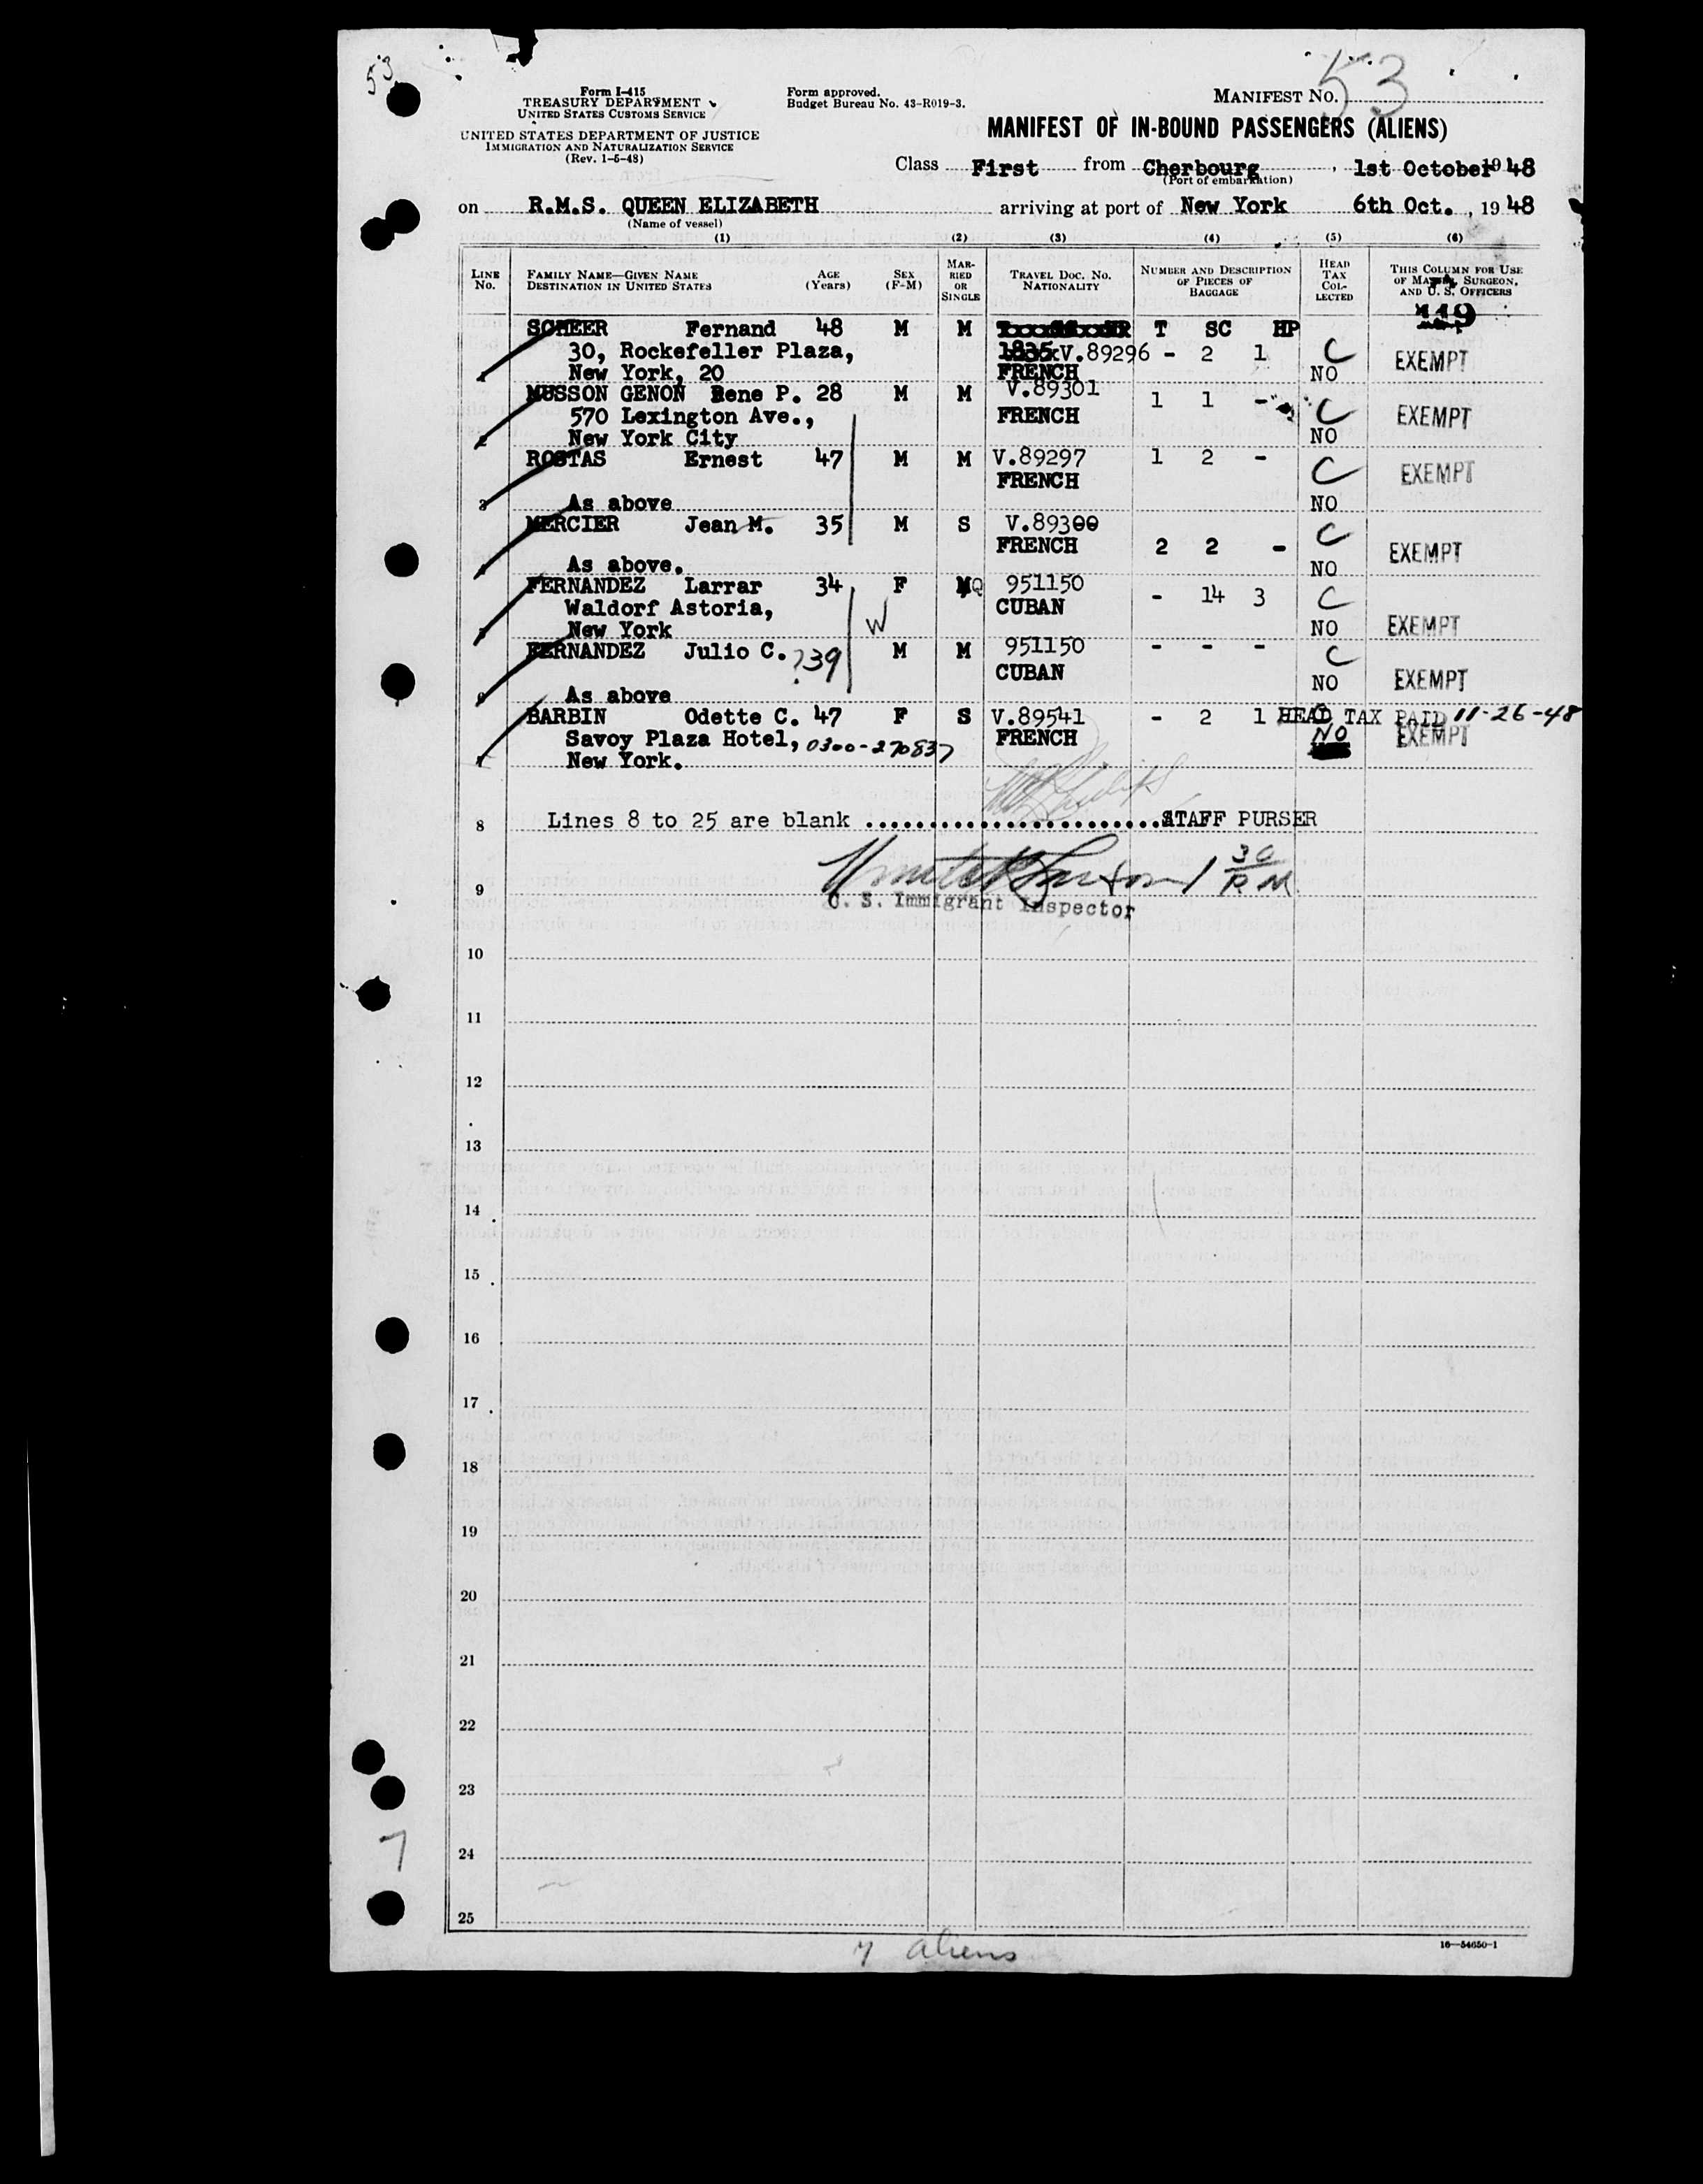 53
Form I-415
TREASURY DEPARTMENT
UNITED STATES CUSTOMS SERVICE
UNITED STATES DEPARTMENT OF JUSTICE
IMMIGRATION AND NATURALIZATION SERVICE
(Rev. 1-5-48)
Form approved.
Budget Bureau No. 43-R019-3.
MANIFEST NO. 53
MANIFEST OF IN-BOUND PASSENGERS (ALIENS)
Class First from Cherbourg, 1st October 19 48
(Port of embarkation)
on R.M.S. QUEEN ELIZABETH arriving at port of New York 6th Oct., 19 48
(Name of vessel)
(1) (2) (3) (4) (5) (6)
LINE No. FAMILY NAME—GIVEN NAME DESTINATION IN UNITED STATES AGE (Years) SEX (F-M) MARRIED OR SINGLE TRAVEL DOC. NO. NATIONALITY NUMBER AND DESCRIPTION OF PIECES OF BAGGAGE HEAD TAX COLLECTED THIS COLUMN FOR USE OF MASTER, SURGEON, AND U. S. OFFICERS
119
SCHEER Fernand 48 M M T SC HP
30, Rockefeller Plaza, V.89296 - 2 1 C EXEMPT
1 New York, 20 FRENCH NO
MUSSON GENON Rene P. 28 M M V.89301 1 1 - C
570 Lexington Ave., FRENCH EXEMPT
2 New York City NO
ROSTAS Ernest 47 M M V.89297 1 2 - C
FRENCH EXEMPT
3 As above NO
MERCIER Jean M. 35 M S V.89300 C
FRENCH 2 2 - EXEMPT
4 As above. NO
FERNANDEZ Larrar 34 F M 951150
Waldorf Astoria, W CUBAN - 14 3 C
5 New York NO EXEMPT
FERNANDEZ Julio C. ?39 M M 951150 - - - C
CUBAN
6 As above NO EXEMPT
BARBIN Odette C. 47 F S V.89541 - 2 1 HEAD TAX PAID 11-26-48
Savoy Plaza Hotel, 0300-270837 FRENCH NO EXEMPT
7 New York.
8 Lines 8 to 25 are blank .......................STAFF PURSER
9 1 30 P M
U. S. Immigrant Inspector
10
11
12
13
14
15
16
17
18
19
20
21
22
23
24
25
7
7 aliens
16—54650-1